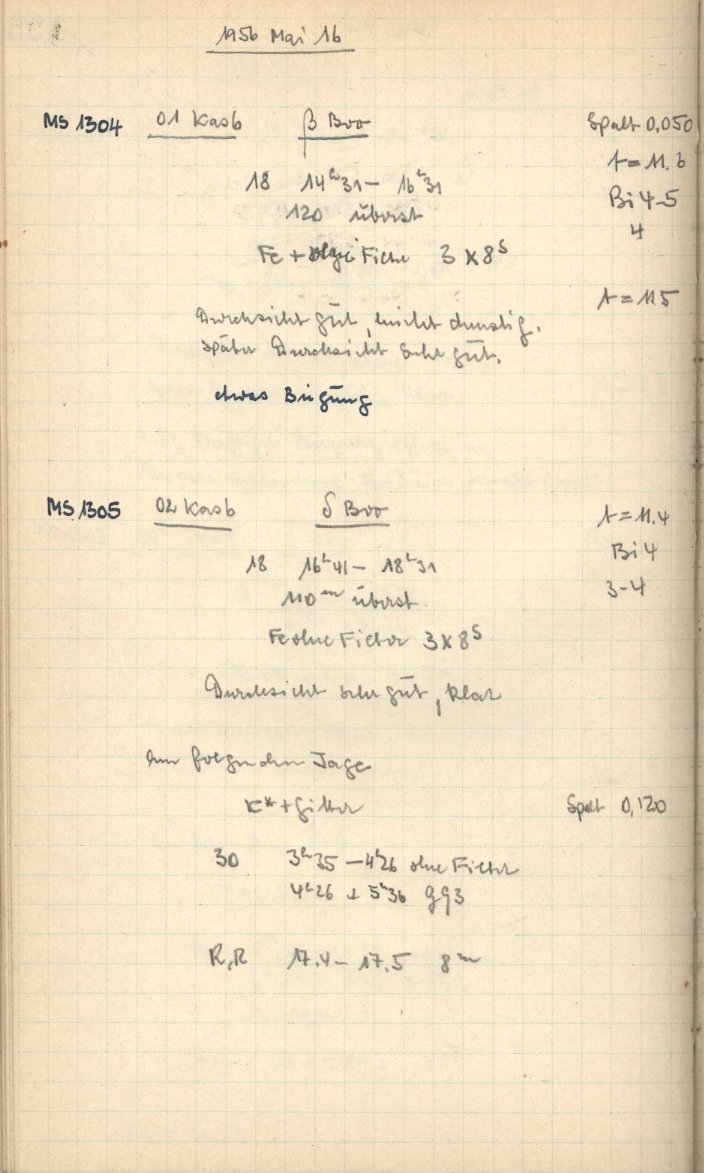 1956 Mai 16
MS 1304 01 Kasb β Boo Spalt 0,050
t = 11.6
18 14ʰ31 – 16ʰ31
Bi 4-5
120 überst
4
Fe + Filter 3 x 8ˢ
t = 11.5
Durchsicht gut, leicht dunstig.
später Durchsicht sehr gut.
etwas Biegung
MS 1305 02 Kasb δ Boo
t = 11.4
18 16ʰ41 – 18ʰ31
Bi 4
110ᵐ überst
3-4
Fe ohne Filter 3 x 8ˢ
Durchsicht sehr gut, klar
am folgenden Tage
K* + Gitter Spalt 0,120
30 3ʰ35 – 4ʰ26 ohne Filter
4ʰ26 5ʰ36 GG3
R,R 17.4 – 17.5 8ᵐ